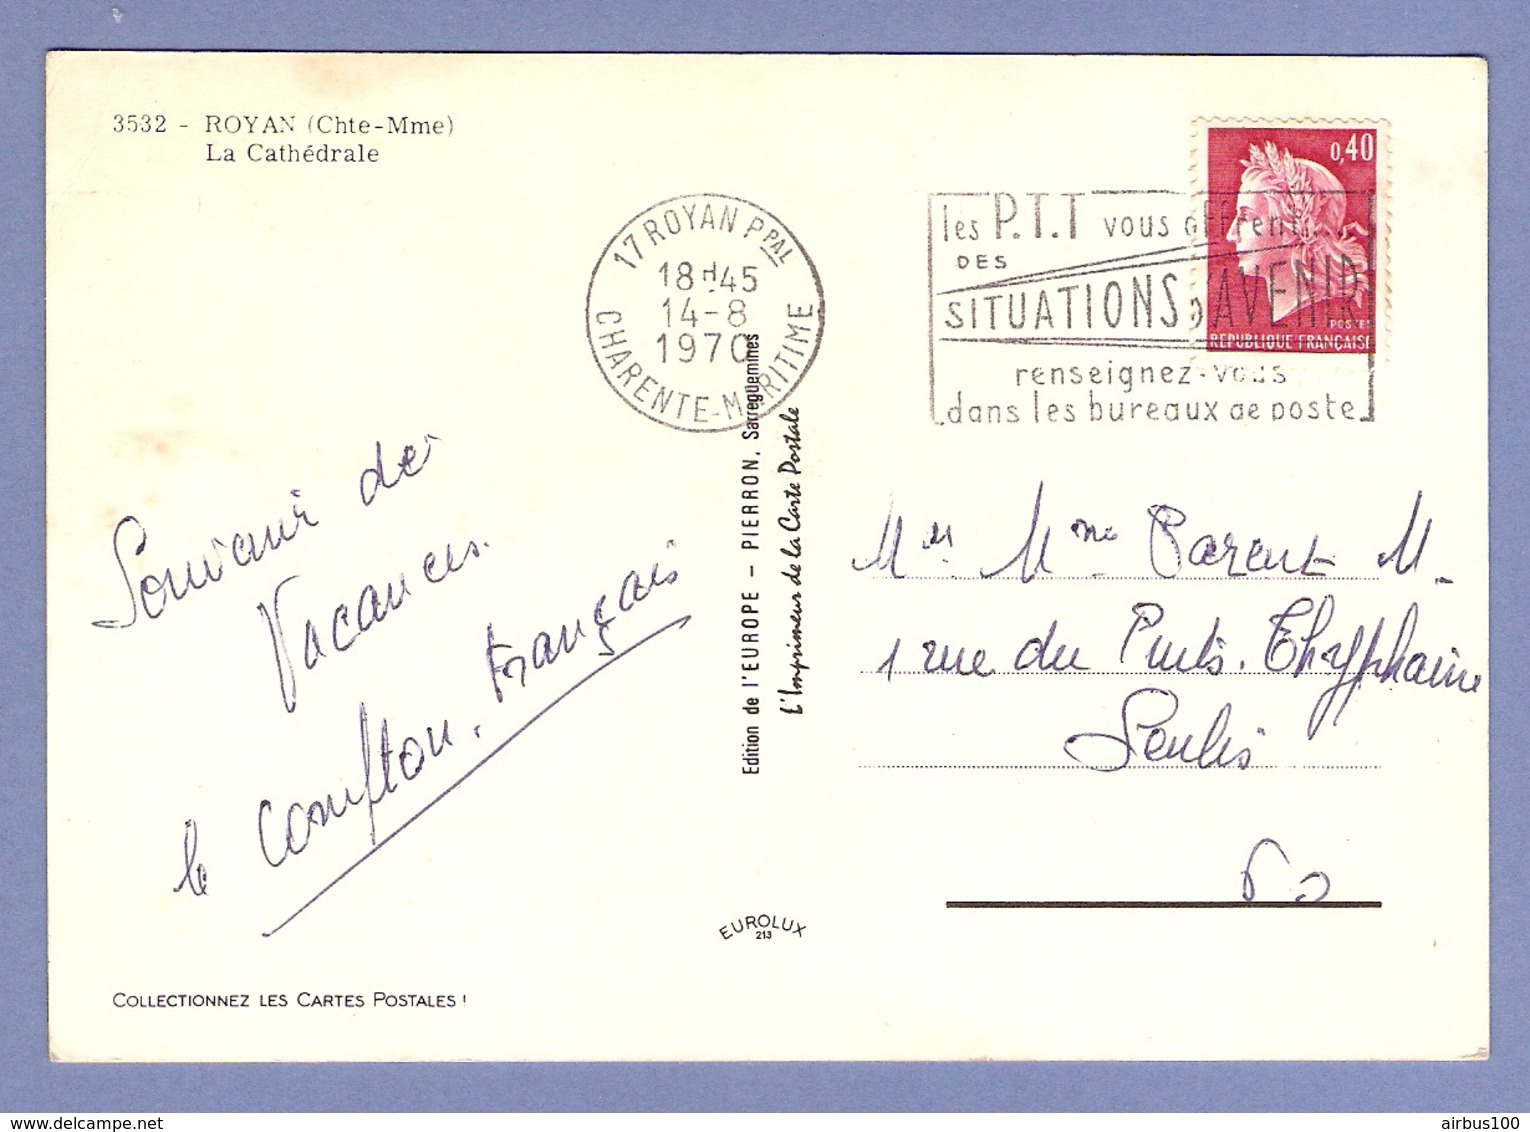 3532 - ROYAN (Chte-Mme)
La Cathédrale
17 ROYAN PPAL
18H45
14-8
1970
CHARENTE-MARITIME
les P.T.T vous offrent
DES
SITUATIONS D'AVENIR
renseignez-vous
dans les bureaux de poste
0,40
POSTES
REPUBLIQUE FRANÇAISE
Souvenir de
Vacances.
le comptoir. Français
Edition de l'EUROPE - PIERRON, Sarreguemines
L'Imprimeur de la Carte Postale
Mr Mme Parent M.
1 rue du Puits. Thyphaine
Senlis
60
EUROLUX
213
COLLECTIONNEZ LES CARTES POSTALES !
airbus100